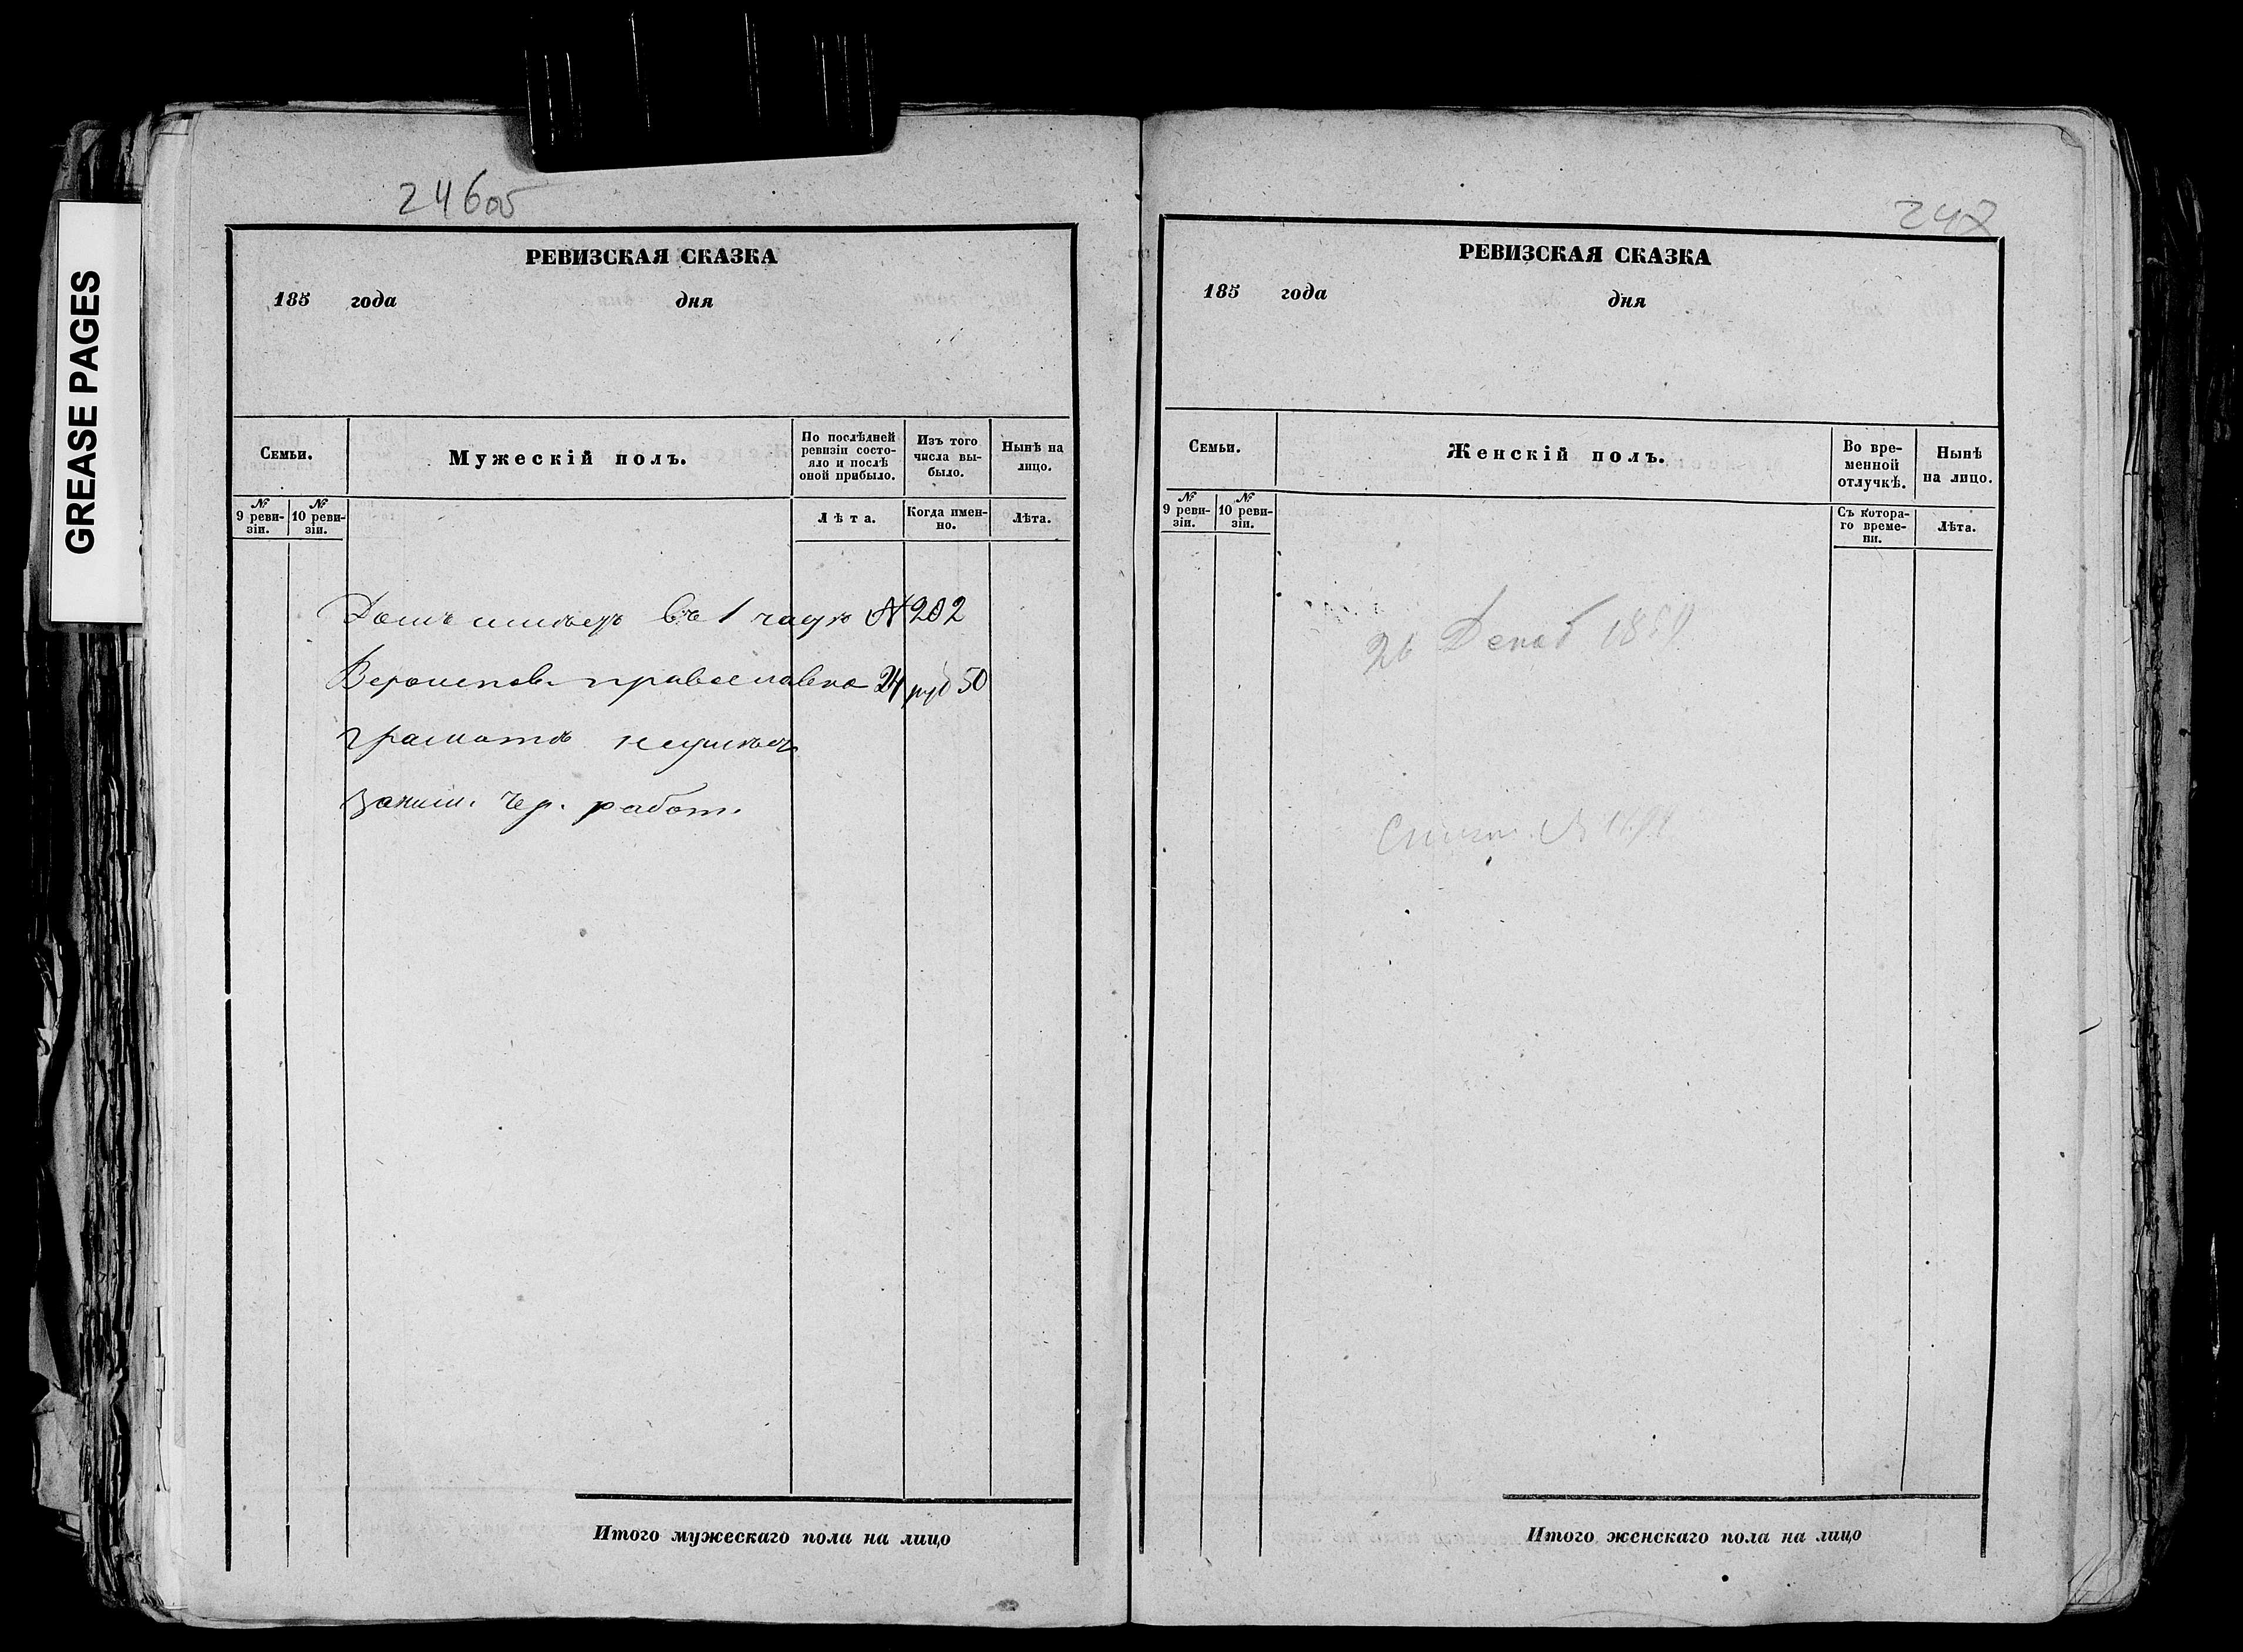 GREASE PAGES
246об
РЕВИЗСКАЯ СКАЗКА
185 года дня
Семьи.
Мужескій полъ.
По послѣдней ревизіи состояло и послѣ оной прибыло.
Изъ того числа выбыло.
Нынѣ на лицо.
№ 9 ревизіи.
№ 10 ревизіи.
Лѣта.
Когда именно.
Лѣта.
Домъ имѣетъ въ 1 части № 202
Вероисповѣ. православна 24 руб 50
грамотѣ неумѣетъ
заним. чер. работ.
Итого мужескаго пола на лицо
247
РЕВИЗСКАЯ СКАЗКА
185 года дня
Семьи.
Женскій полъ.
Во временной отлучкѣ.
Нынѣ на лицо.
№ 9 ревизіи.
№ 10 ревизіи.
Съ котораго времени.
Лѣта.
26 Декаб
Итого женскаго пола на лицо